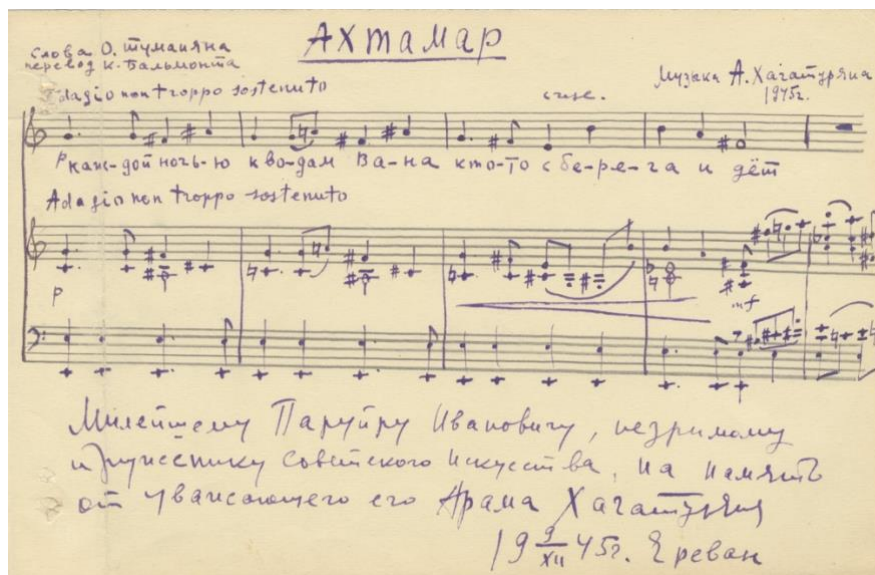 Ахтамар
Слова О. Туманяна
перевод К. Бальмонта
Музыка А. Хачатуряна
1945г.
Adagio non troppo sostenuto
cresc.
p каж-дой ночь-ю к во-дам Ва-на кто-то с бе-ре-га и дёт
Adagio non troppo sostenuto
p
mf
Милейшему Паруйру Ивановичу, незримому
и труженику советского искусства, на память
от уважающего его Арама Хачатуряна
19 9/XII 45г. Ереван